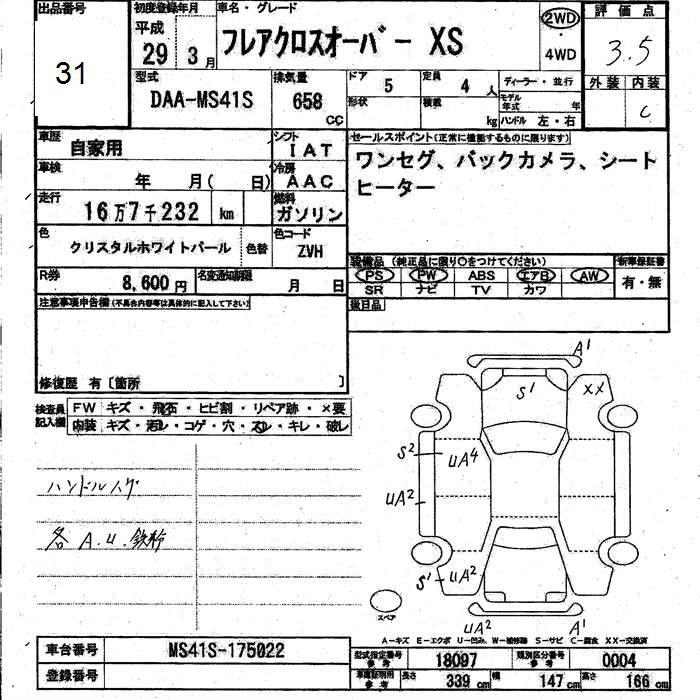 出品番号 初度登録年月 車名・グレード 評価点
平成 29 3月 フレアクロスオーバー XS 2WD・4WD 3.5
31
型式 排気量 ドア 5 定員 4人 ディーラー・並行 外装 内装
DAA-MS41S 658cc 形状 積載 kg モデル年式 年 C
ハンドル 左・右
車歴 自家用 シフト IAT セールスポイント(正常に機能するものに限ります)
車検 年 月( 日) 冷房 AAC ワンセグ、バックカメラ、シート
ヒーター
走行 16万7千232 km 燃料 ガソリン
色 クリスタルホワイトパール 色替 色コード ZVH
装備品 (純正品に限り○をつけてください) 新車保証書
R券 8,600円 名変通知期限 月 日 PS PW ABS エアB AW 有・無
SR ナビ TV カワ
注意事項申告欄(不具合内容等は具体的に記入して下さい) 後日品
修復歴 有〔箇所 〕
検査員記入欄 FW キズ・飛石・ヒビ割・リペア跡・×要
内装 キズ・汚レ・コゲ・穴・スレ・キレ・破レ
A1
S1
XX
S2
UA4
UA2
各 A.U.鉄粉
S1
UA2
スペア
UA2
A1
A-キズ E-エクボ U-凹み W-補修跡 S-サビ C-腐食 XX-交換済
車台番号 MS41S-175022 型式指定番号 参考 18097 類別区分番号 参考 0004
登録番号 車庫証明用 参考 長さ 339cm 幅 147cm 高さ 166cm